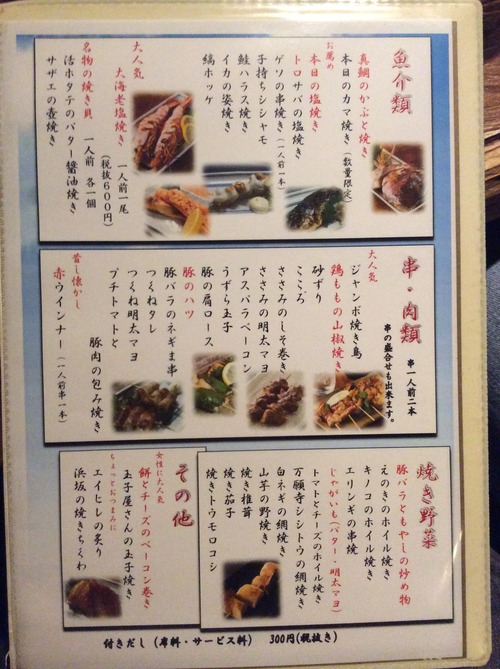 魚介類
真鯛のかぶと焼き
本日のカマ焼き(数量限定)
お薦め
本日の塩焼き
トロサバの塩焼き
ゲソの串焼き(一人前一本)
子持ちシシャモ
鮭ハラス焼き
イカの姿焼き
縞ホッケ
大人気
大海老塩焼き 一人前一尾
(税抜600円)
名物の焼き貝 一人前 各一個
活ホタテのバター醤油焼き
サザエの壺焼き
串・肉類 串一人前二本
串の盛合せも出来ます。
大人気
ジャンボ焼き鳥
鶏ももの山椒焼き
砂ずり
こころ
ささみのしそ巻き
ささみの明太マヨ
アスパラベーコン
うずら玉子
豚の肩ロース
豚のハツ
豚バラのネギま串
つくねタレ
つくね明太マヨ
プチトマトと
豚肉の包み焼き
昔し懐かし
赤ウインナー(一人前串一本)
焼き野菜
豚バラともやしの炒め物
えのきのホイル焼き
キノコのホイル焼き
エリンギの串焼
じゃがいも(バター・明太マヨ)
トマトとチーズのホイル焼き
万願寺シシトウの網焼き
白ネギの網焼き
山芋の野焼き
焼き椎茸
焼き茄子
焼きトウモロコシ
その他
女性に大人気
餅とチーズのベーコン巻き
玉子屋さんの玉子焼き
ちょっとおつまみに
エイヒレの炙り
浜坂の焼きちくわ
付きだし(席料・サービス料) 300円(税抜き)